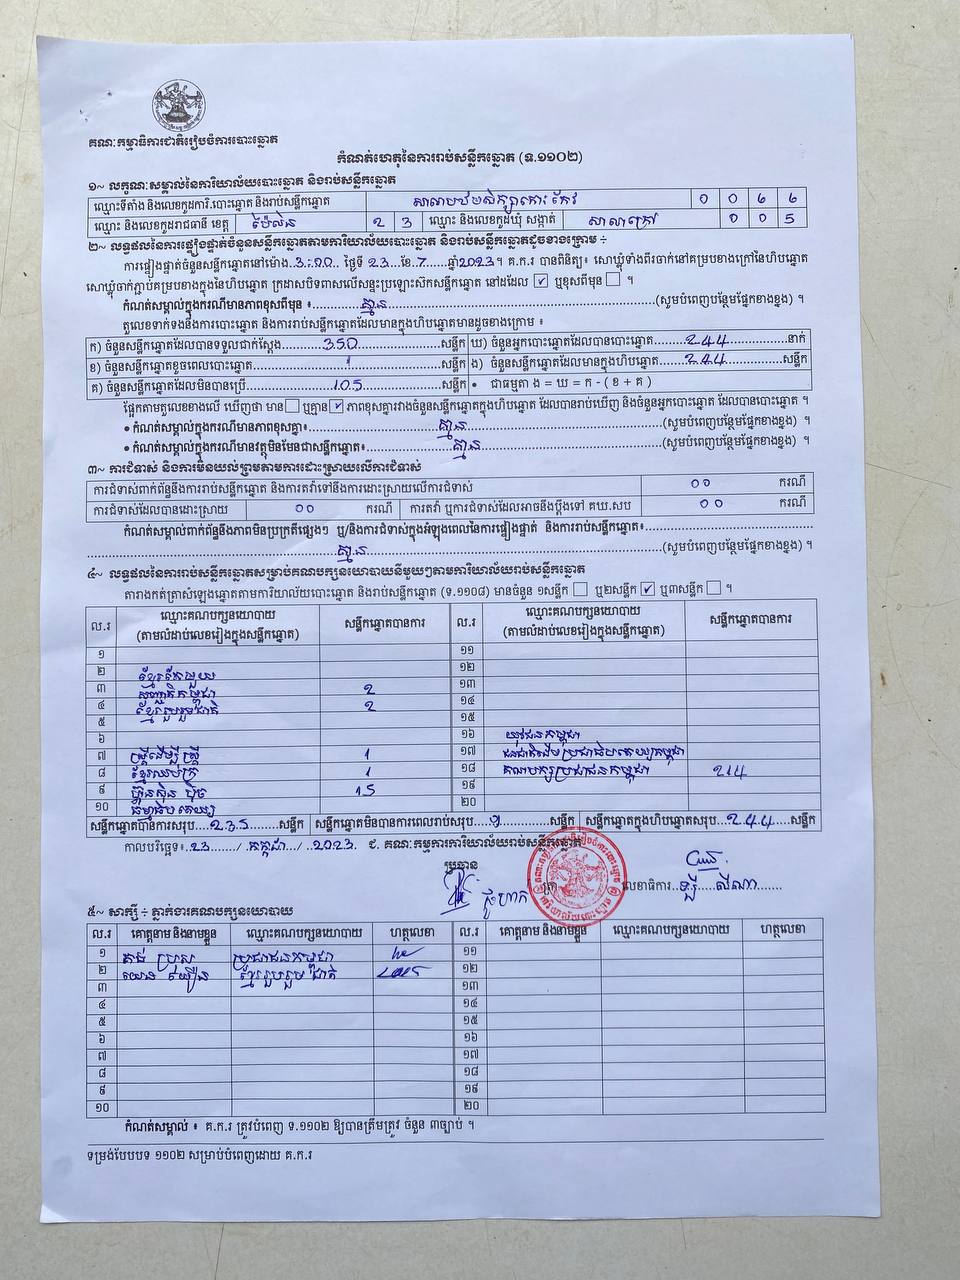 គណៈកម្មាធិការជាតិរៀបចំការបោះឆ្នោត
កំណត់ហេតុនៃការរាប់សន្លឹកឆ្នោត (ទ.១១០២)
១~ លក្ខណៈសម្គាល់នៃការិយាល័យបោះឆ្នោត និងរាប់សន្លឹកឆ្នោត
ឈ្មោះទីតាំង និងលេខកូដការិ.បោះឆ្នោត និងរាប់សន្លឹកឆ្នោត 0 0 6 6
ឈ្មោះ និងលេខកូដរាជធានី ខេត្ត ប៉ៃលិន 2 3 ឈ្មោះ និងលេខកូដឃុំ សង្កាត់ សាលាក្រៅ 0 0 5
២~ លទ្ធផលនៃការផ្ទៀងផ្ទាត់ចំនួនសន្លឹកឆ្នោតតាមការិយាល័យបោះឆ្នោត និងរាប់សន្លឹកឆ្នោតដូចខាងក្រោម ÷
ការផ្ទៀងផ្ទាត់ចំនួនសន្លឹកឆ្នោតនៅម៉ោង..3:00 ថ្ងៃទី 23 ខែ.7 ឆ្នាំ2023។ គ.ក.រ បានពិនិត្យ៖ សោឃ្លុំទាំងពីរចាក់នៅគម្របខាងក្រៅនៃហិបឆ្នោត
សោឃ្លុំចាក់ភ្ជាប់គម្របខាងក្នុងនៃហិបឆ្នោត ក្រដាសបិទពាសលើសន្ទះប្រឡោះស៊កសន្លឹកឆ្នោត នៅដដែល ✓ ឬខុសពីមុន ។
កំណត់សម្គាល់ក្នុងករណីមានភាពខុសពីមុន ៖ គ្មាន (សូមបំពេញបន្ថែមផ្នែកខាងខ្នង) ។
តួលេខទាក់ទងនឹងការបោះឆ្នោត និងការរាប់សន្លឹកឆ្នោតដែលមានក្នុងហិបឆ្នោតមានដូចខាងក្រោម ៖
ក) ចំនួនសន្លឹកឆ្នោតដែលបានទទួលជាក់ស្តែង 350 សន្លឹក ឃ) ចំនួនអ្នកបោះឆ្នោតដែលបានបោះឆ្នោត 244 នាក់
ខ) ចំនួនសន្លឹកឆ្នោតខូចពេលបោះឆ្នោត 1 សន្លឹក ង) ចំនួនសន្លឹកឆ្នោតដែលមានក្នុងហិបឆ្នោត 244 សន្លឹក
គ) ចំនួនសន្លឹកឆ្នោតដែលមិនបានប្រើ 105 សន្លឹក • ជាធម្មតា ង = ឃ = ក - ( ខ + គ )
ផ្អែកតាមតួលេខខាងលើ ឃើញថា មាន ឬគ្មាន ✓ ភាពខុសគ្នារវាងចំនួនសន្លឹកឆ្នោតក្នុងហិបឆ្នោត ដែលបានរាប់ឃើញ និងចំនួនអ្នកបោះឆ្នោត ដែលបានបោះឆ្នោត ។
• កំណត់សម្គាល់ក្នុងករណីមានភាពខុសគ្នា៖ គ្មាន (សូមបំពេញបន្ថែមផ្នែកខាងខ្នង) ។
• កំណត់សម្គាល់ក្នុងករណីមានវត្ថុមិនមែនជាសន្លឹកឆ្នោត៖ គ្មាន (សូមបំពេញបន្ថែមផ្នែកខាងខ្នង) ។
៣~ ការជំទាស់ និងការមិនយល់ព្រមតាមការដោះស្រាយលើការជំទាស់
ការជំទាស់ពាក់ព័ន្ធនឹងការរាប់សន្លឹកឆ្នោត និងការតវ៉ាទៅនឹងការដោះស្រាយលើការជំទាស់ 00 ករណី
ការជំទាស់ដែលបានដោះស្រាយ 00 ករណី ការតវ៉ា ឬការជំទាស់ដែលអាចនឹងប្តឹងទៅ គឃ.សប 00 ករណី
កំណត់សម្គាល់ពាក់ព័ន្ធនឹងភាពមិនប្រក្រតីផ្សេងៗ ឬ/និងការជំទាស់ក្នុងអំឡុងពេលនៃការផ្ទៀងផ្ទាត់ និងការរាប់សន្លឹកឆ្នោត៖
គ្មាន (សូមបំពេញបន្ថែមផ្នែកខាងខ្នង) ។
៤~ លទ្ធផលនៃការរាប់សន្លឹកឆ្នោតសម្រាប់គណបក្សនយោបាយនីមួយៗតាមការិយាល័យរាប់សន្លឹកឆ្នោត
តារាងកត់ត្រាសំឡេងឆ្នោតតាមការិយាល័យបោះឆ្នោត និងរាប់សន្លឹកឆ្នោត (ទ.១១០៨) មានចំនួន ១សន្លឹក ឬ២សន្លឹក ✓ ឬ៣សន្លឹក ។
ល.រ ឈ្មោះគណបក្សនយោបាយ (តាមលំដាប់លេខរៀងក្នុងសន្លឹកឆ្នោត) សន្លឹកឆ្នោតបានការ ល.រ ឈ្មោះគណបក្សនយោបាយ (តាមលំដាប់លេខរៀងក្នុងសន្លឹកឆ្នោត) សន្លឹកឆ្នោតបានការ
១ ១១
២ ១២
៣ 2 ១៣
៤ ខ្មែររួបរួមជាតិ 2 ១៤
៥ ១៥
៦ ១៦ យុវជនកម្ពុជា
៧ ស្ត្រីដើម្បីស្ត្រី 1 ១៧ ជនជាតិដើមប្រជាធិបតេយ្យកម្ពុជា
៨ 1 ១៨ គណបក្សប្រជាជនកម្ពុជា 214
៩ ហ្វ៊ុនស៊ិនប៉ិច 15 ១៩
១០ ធម្មាធិបតេយ្យ ២០
សន្លឹកឆ្នោតបានការសរុប 235 សន្លឹក សន្លឹកឆ្នោតមិនបានការពេលរាប់សរុប 9 សន្លឹក សន្លឹកឆ្នោតក្នុងហិបឆ្នោតសរុប 244 សន្លឹក
កាលបរិច្ឆេទ៖ 23 / កក្កដា / 2023 ជ. គណៈកម្មការការិយាល័យរាប់សន្លឹកឆ្នោត
ប្រធាន
លេខាធិការ
៥~ សាក្សី ÷ ភ្នាក់ងារគណបក្សនយោបាយ
ល.រ គោត្តនាម និងនាមខ្លួន ឈ្មោះគណបក្សនយោបាយ ហត្ថលេខា ល.រ គោត្តនាម និងនាមខ្លួន ឈ្មោះគណបក្សនយោបាយ ហត្ថលេខា
១ ប្រជាជនកម្ពុជា ១១
២ ខ្មែររួបរួមជាតិ ១២
៣ ១៣
៤ ១៤
៥ ១៥
៦ ១៦
៧ ១៧
៨ ១៨
៩ ១៩
១០ ២០
កំណត់សម្គាល់ ៖ គ.ក.រ ត្រូវបំពេញ ទ.១១០២ ឱ្យបានត្រឹមត្រូវ ចំនួន ៣ច្បាប់ ។
ទម្រង់បែបបទ ១១០២ សម្រាប់បំពេញដោយ គ.ក.រ